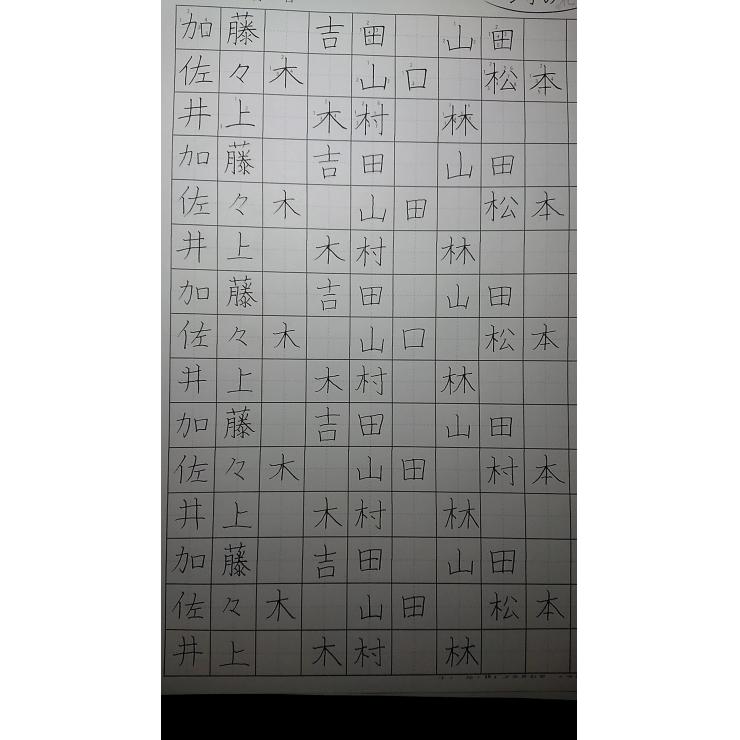 加藤 吉田 山田
佐々木 山口 松本
井上 木村 林
加藤 吉田 山田
佐々木 山田 松本
井上 木村 林
加藤 吉田 山田
佐々木 山口 松本
井上 木村 林
加藤 吉田 山田
佐々木 山田 村本
井上 木村 林
加藤 吉田 山田
佐々木 山田 松本
井上 木村 林